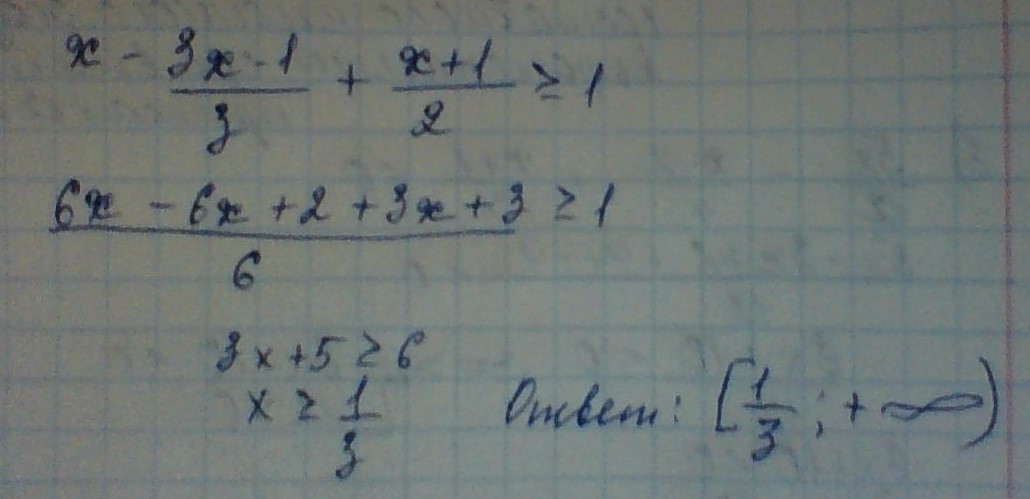 x - \frac{3x-1}{3} + \frac{x+1}{2} ≥ 1
\frac{6x - 6x + 2 + 3x + 3}{6} ≥ 1
3x + 5 ≥ 6
x ≥ \frac{1}{3} Ответ: [\frac{1}{3}; +∞)